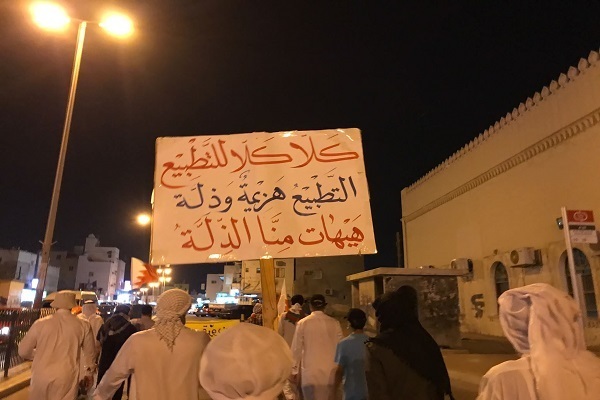 كَلّا كَلّا للتَّطْبيع
التَّطْبيعُ هَزيمَةٌ وَذِلَّة
هَيْهَات مِنَّا الذِلَّةُ